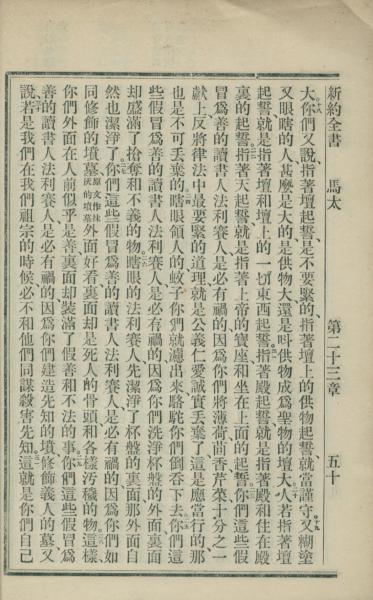 新約全書 馬太 第二十三章 五十
大你們又說指著壇起誓是不要緊的指著壇上的供物起誓就當謹守又糊塗
又眼瞎的人甚麼是大的是供物大還是叫供物成爲聖物的壇大人若指著壇
起誓就是指著壇和壇上的一切東西起誓指著殿起誓就是指著殿和住在殿
裏的起誓指著天起誓就是指著上帝的寶座和坐在上面的起誓你們這些假
冒爲善的讀書人法利賽人是必有禍的因爲你們將薄荷茴香芹菜十分之一
獻上反將律法中最要緊的道理就是公義仁愛誠實丟棄了這是應當行的那
也是不可丟棄的瞎眼領人的蚊子你們就濾出來駱駝你們倒吞下去你們這
些假冒爲善的讀書人法利賽人是必有禍的因爲你們洗淨杯盤的外面裏面
却盛滿了搶奪和不義的物瞎眼的法利賽人先潔淨了杯盤的裏面那外面自
然也潔淨了你們這些假冒爲善的讀書人法利賽人是必有禍的因爲你們如
同修飾的墳墓原文作抹灰的墳墓外面好看裏面却是死人的骨頭和各樣污穢的物這樣
你們外面在人前似乎是善裏面却裝滿了假善和不法的事你們這些假冒爲
善的讀書人法利賽人是必有禍的因爲你們建造先知的墳修飾義人的墓又
說若是我們在我們祖宗的時候必不和他們同謀殺害先知這就是你們自己